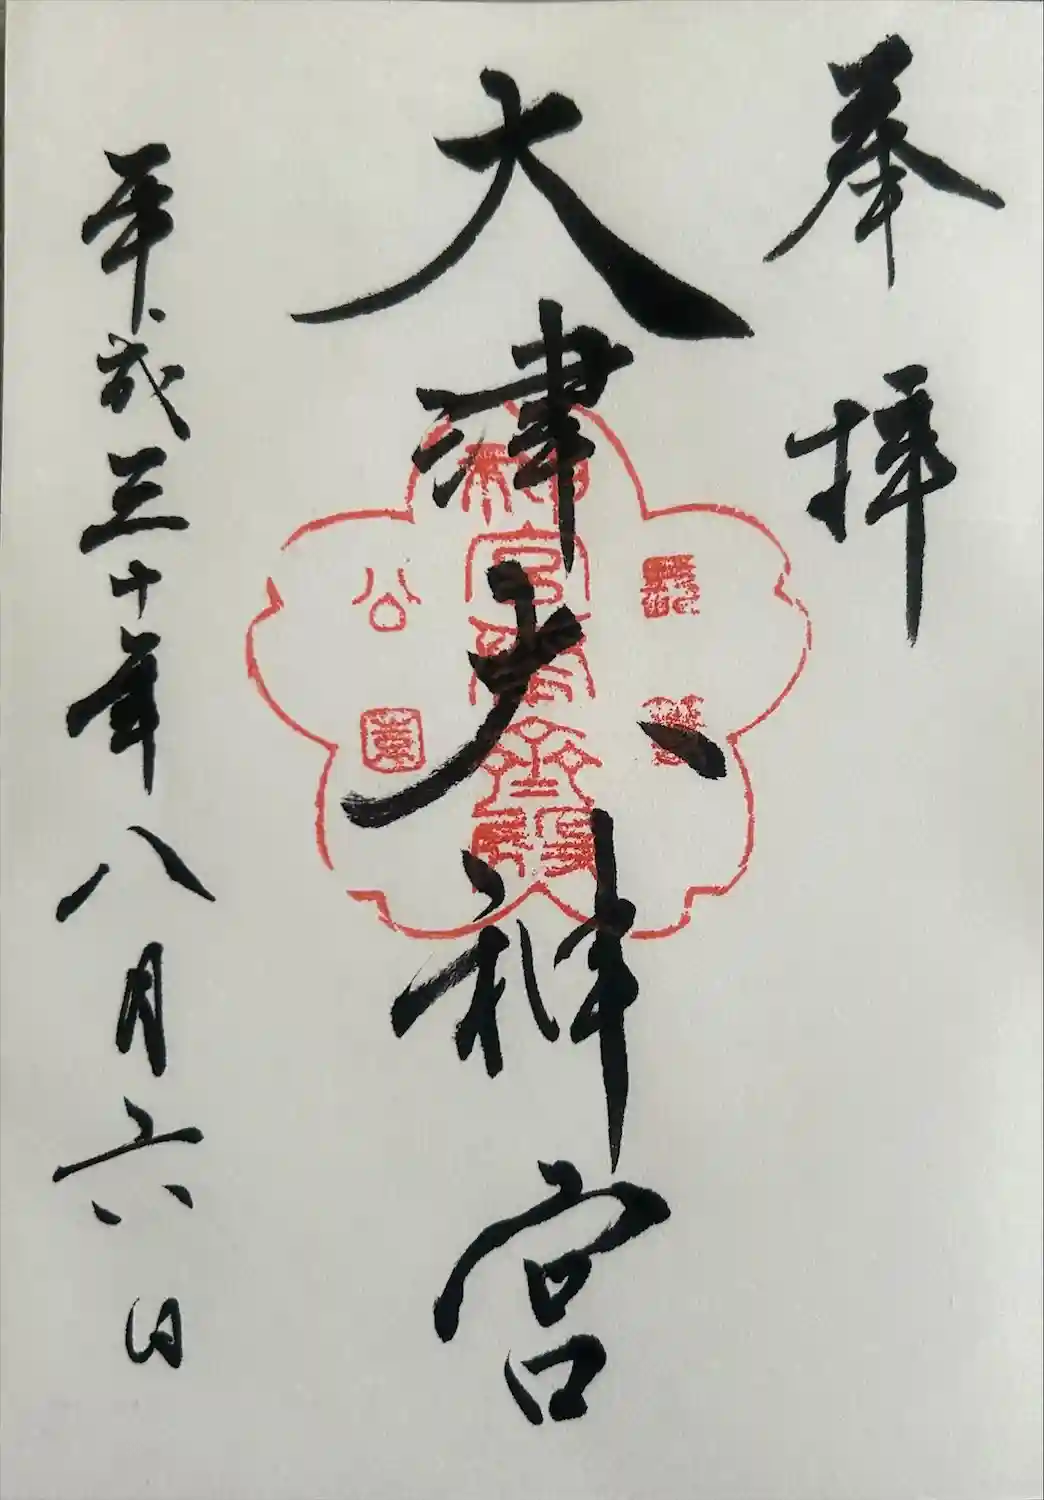 奉拝
大津大神宮
平成三十年八月六日
公園